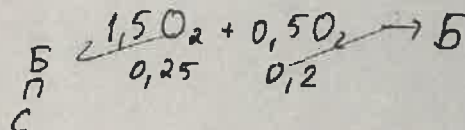 1,5O₂ + 0,5O₂ → Б
Б 0,25 0,2
П
С